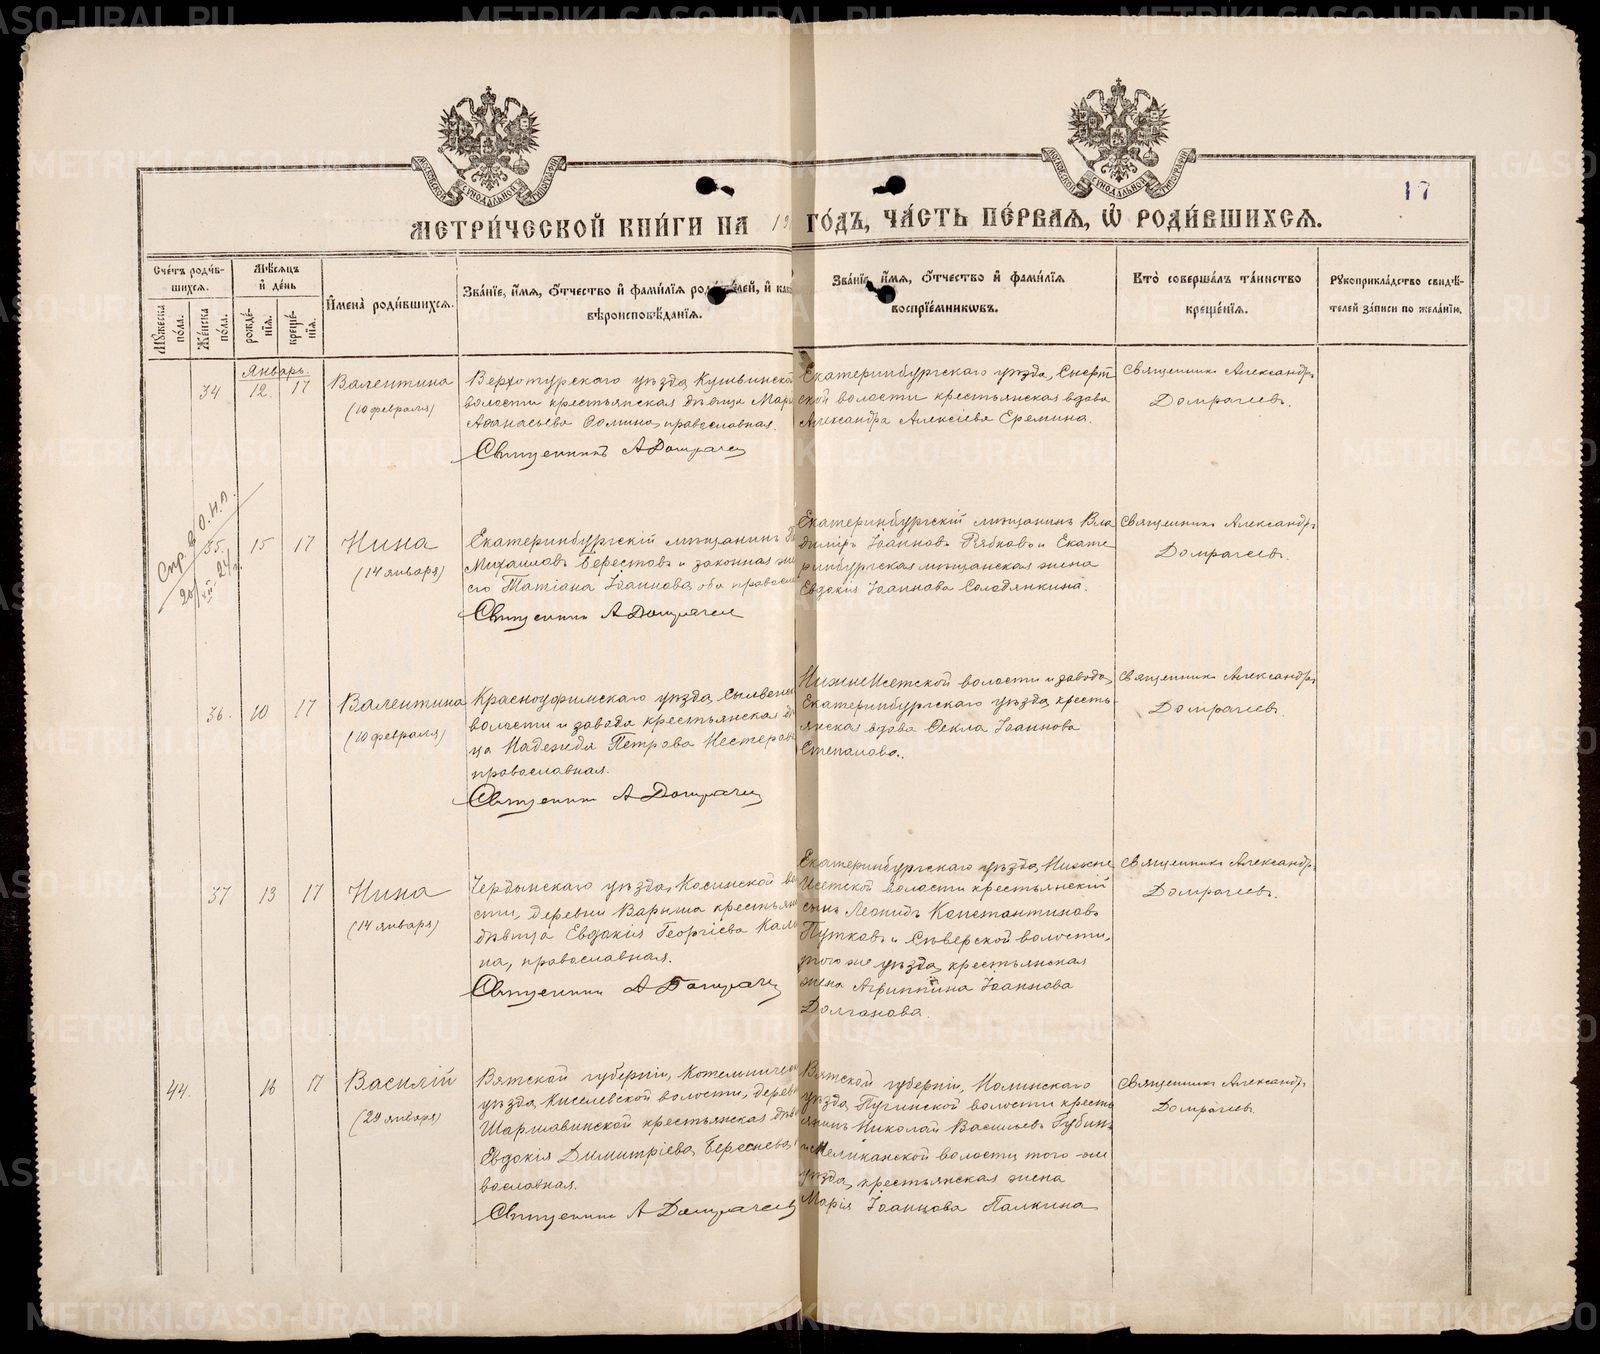 17
МЕТРИ́ЧЕСКОЙ КНИ́ГИ НА 19 ГО́ДЪ, ЧА́СТЬ ПЕ́РВАЯ, Ѿ РОДИ́ВШИХСЯ.
Сче́тъ роди́вшихся.
Му́жеска по́ла.
Же́нска по́ла.
Мѣ́сяцъ и҆ де́нь
рожде́нїя.
креще́нїя.
И҆мена̀ роди́вшихся.
Зва́нїе, и҆́мя, ѻ҆́тчество и҆ фами́лїя роди́телей, и҆ как
вѣроисповѣ́данїя.
Зва́нїе, и҆́мя, ѻ҆́тчество и҆ фами́лїя
воспрїе́мникѡвъ.
Кто̀ соверша́лъ та́инство
креще́нїя.
Рꙋкоприкла́дство свидѣ́-
телей за́писи по жела́нїю.
Январь.
34 12. 17 Валентина
(10 февраля)
Верхотурскаго уѣзда, Кушвинской
волости крестьянская дѣвица Марі
Аѳанасьева Ѳомина, православная.
Священникъ А Домрачев
Екатеринбургскаго уѣзда, Сысерт
ской волости крестьянская вдова
Александра Алексіева Еремина.
Священникъ Александръ
Домрачевъ.
35. 15 17 Нина
(14 января)
Екатеринбургскій мѣщанинъ
Михаиловъ Берестовъ и законная же
его Татіана Іоаннова, оба правосла
Священник А Домрачев
Екатеринбургскій мѣщанинъ Вла
диміръ Іоанновъ Рябковъ и Екате
ринбургская мѣщанская жена
Евдокія Іоаннова Солодянкина.
Священникъ Александръ
Домрачевъ.
36. 10 17 Валентина
(10 февраля)
Красноуфимскаго уѣзда, Сылвенск
волости и завода крестьянская дѣ
ца Надежда Петрова Нестерова
православная.
Священник А Домрачев
НижнеИсетской волости и завода,
Екатеринбургскаго уѣзда, кресть
янская вдова Ѳекла Іоаннова
Степанова.
Священникъ Александръ
Домрачевъ.
37 13 17 Нина
(14 января)
Чердынскаго уѣзда, Косинской во
сти, деревни Варыша крестьян
дѣвица Евдокія Георгіева Кал
на, православная.
Священник А Домрачев
Екатеринбургскаго уѣзда, Нижне
Исетской волости крестьянскій
сынъ Леонидъ Константиновъ
Путковъ и Сѣверской волости,
того же уѣзда, крестьянская
жена Агриппина Іоаннова
Долганова.
Священникъ Александръ
Домрачевъ.
44. 16 17 Василій
(29 января)
Вятской губерніи, Котельническ
уѣзда, Киселевской волости, деревн
Шаршавинской крестьянская дѣв
Евдокія Димитріева Береснева,
вославная.
Священник А Домрачев
Вятской губерніи, Нолинскаго
уѣзда, Пугинской волости кресть
янинъ Николай Васильевъ Губинъ
волости, того-же
уѣзда, крестьянская жена
Марія Іоаннова Палкина
Священникъ Александръ
Домрачевъ.
METRIKI.GASO-URAL.RU